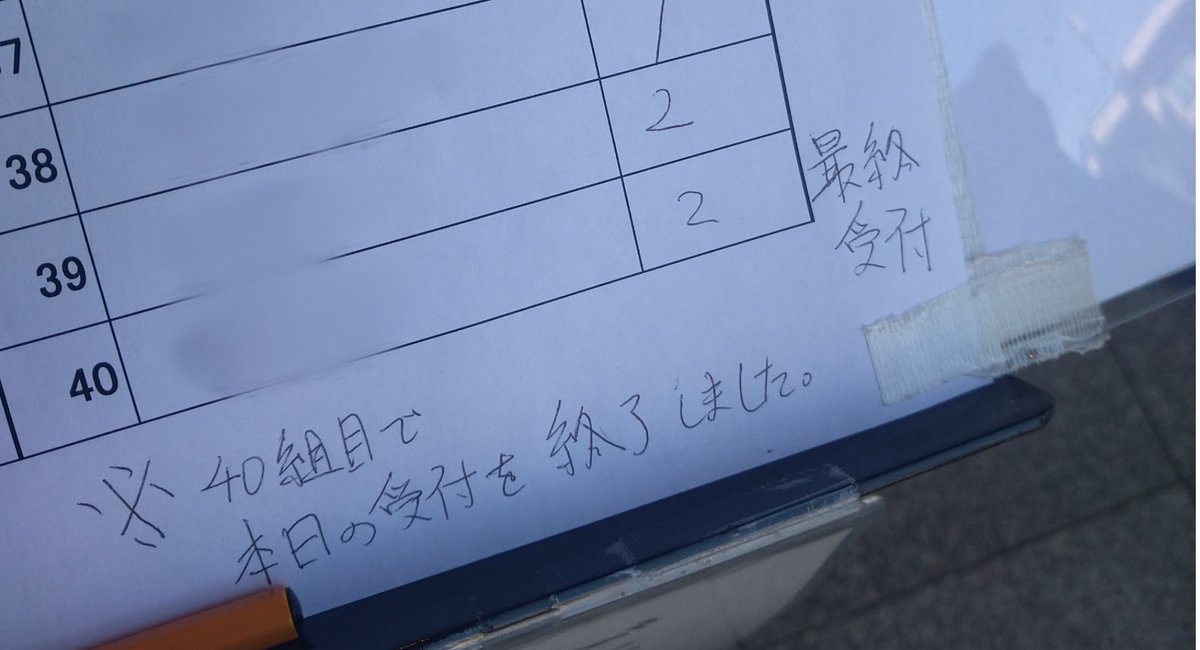 1
38
2
39
2
40
最終
受付
※ 40組目で
本日の受付を終了しました。